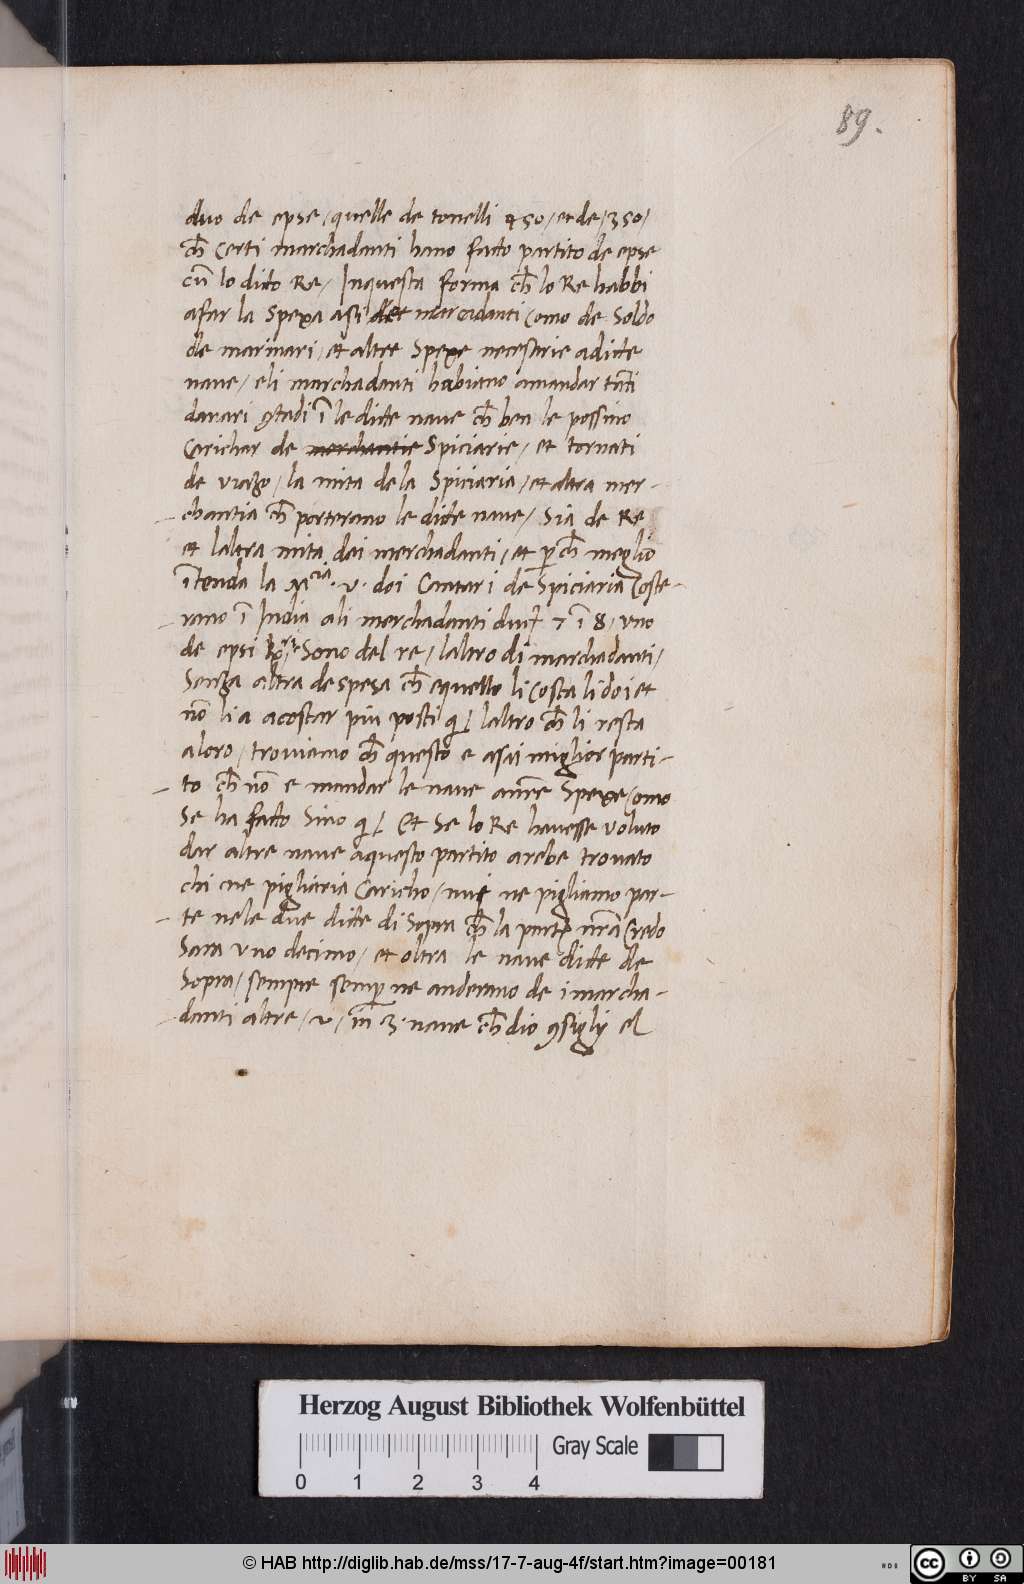 89.
duo de epse / quelle de tonelli 450 / et de / 350 /
ch̄ Certi marchadanti hano fatto partito de epse
cū lo dicto Re / Inquesta forma ch̄ lo Re habbi
afar la Spexa asi det marcadanti Como de Soldo
de marinari / et altre Spexe necessrie a dicte
nave / e li marchadanti habiano amandar tāti
danari 9tadi ī le dicte nave ch̄ ben le possino
Carichar de merchantie Spiciarie / et tornati
de viazo / la mita de la Spiciaria / et altra mer-
chantia ch̄ porterano le dicte nave / Sia de Re
et laltra mita dei merchadanti / et p̄ ch̄ meglio
ītenda la M.cia. v. doi Cantari de Spiciaria Coste-
rano ī India ali merchadanti ducͭ 7 ī 8 / uno
de epsi Sono del re / laltro di marchadanti /
Senza altra despesa ch̄ equello li Costa li doi et
nō li a acostar piu posti q / laltro ch̄ li resta
a loro / troviamo ch̄ questo e asai miglior parti-
to ch̄ nō e mandar le nave a nr̄e Spexe Como
Se ha facto Sino q / Et Se lo Re havesse voluto
dar altre nave aquesto partito arebe trovato
chi ne pigliaria Caricho / nui ne pigliamo par-
te nele due dicte di Sopra ch̄ la parte nr̄a Credo
Sara uno decimo / et oltra le nave dicte de
Sopra / sempre semp̄ ne anderano de i marcha-
danti altre / 2 / in 3. nave ch̄ dio 9siglij el
Herzog August Bibliothek Wolfenbüttel
Gray Scale
0 1 2 3 4
© HAB http://diglib.hab.de/mss/17-7-aug-4f/start.htm?image=00181
cc BY SA